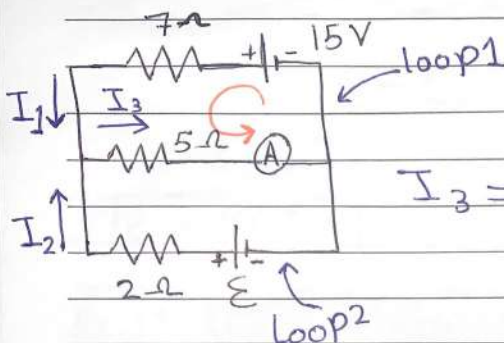 7Ω
+ - 15V
loop1
I₁
I₃
5Ω
A
I₃ =
I₂
+ -
2Ω
ε
loop2